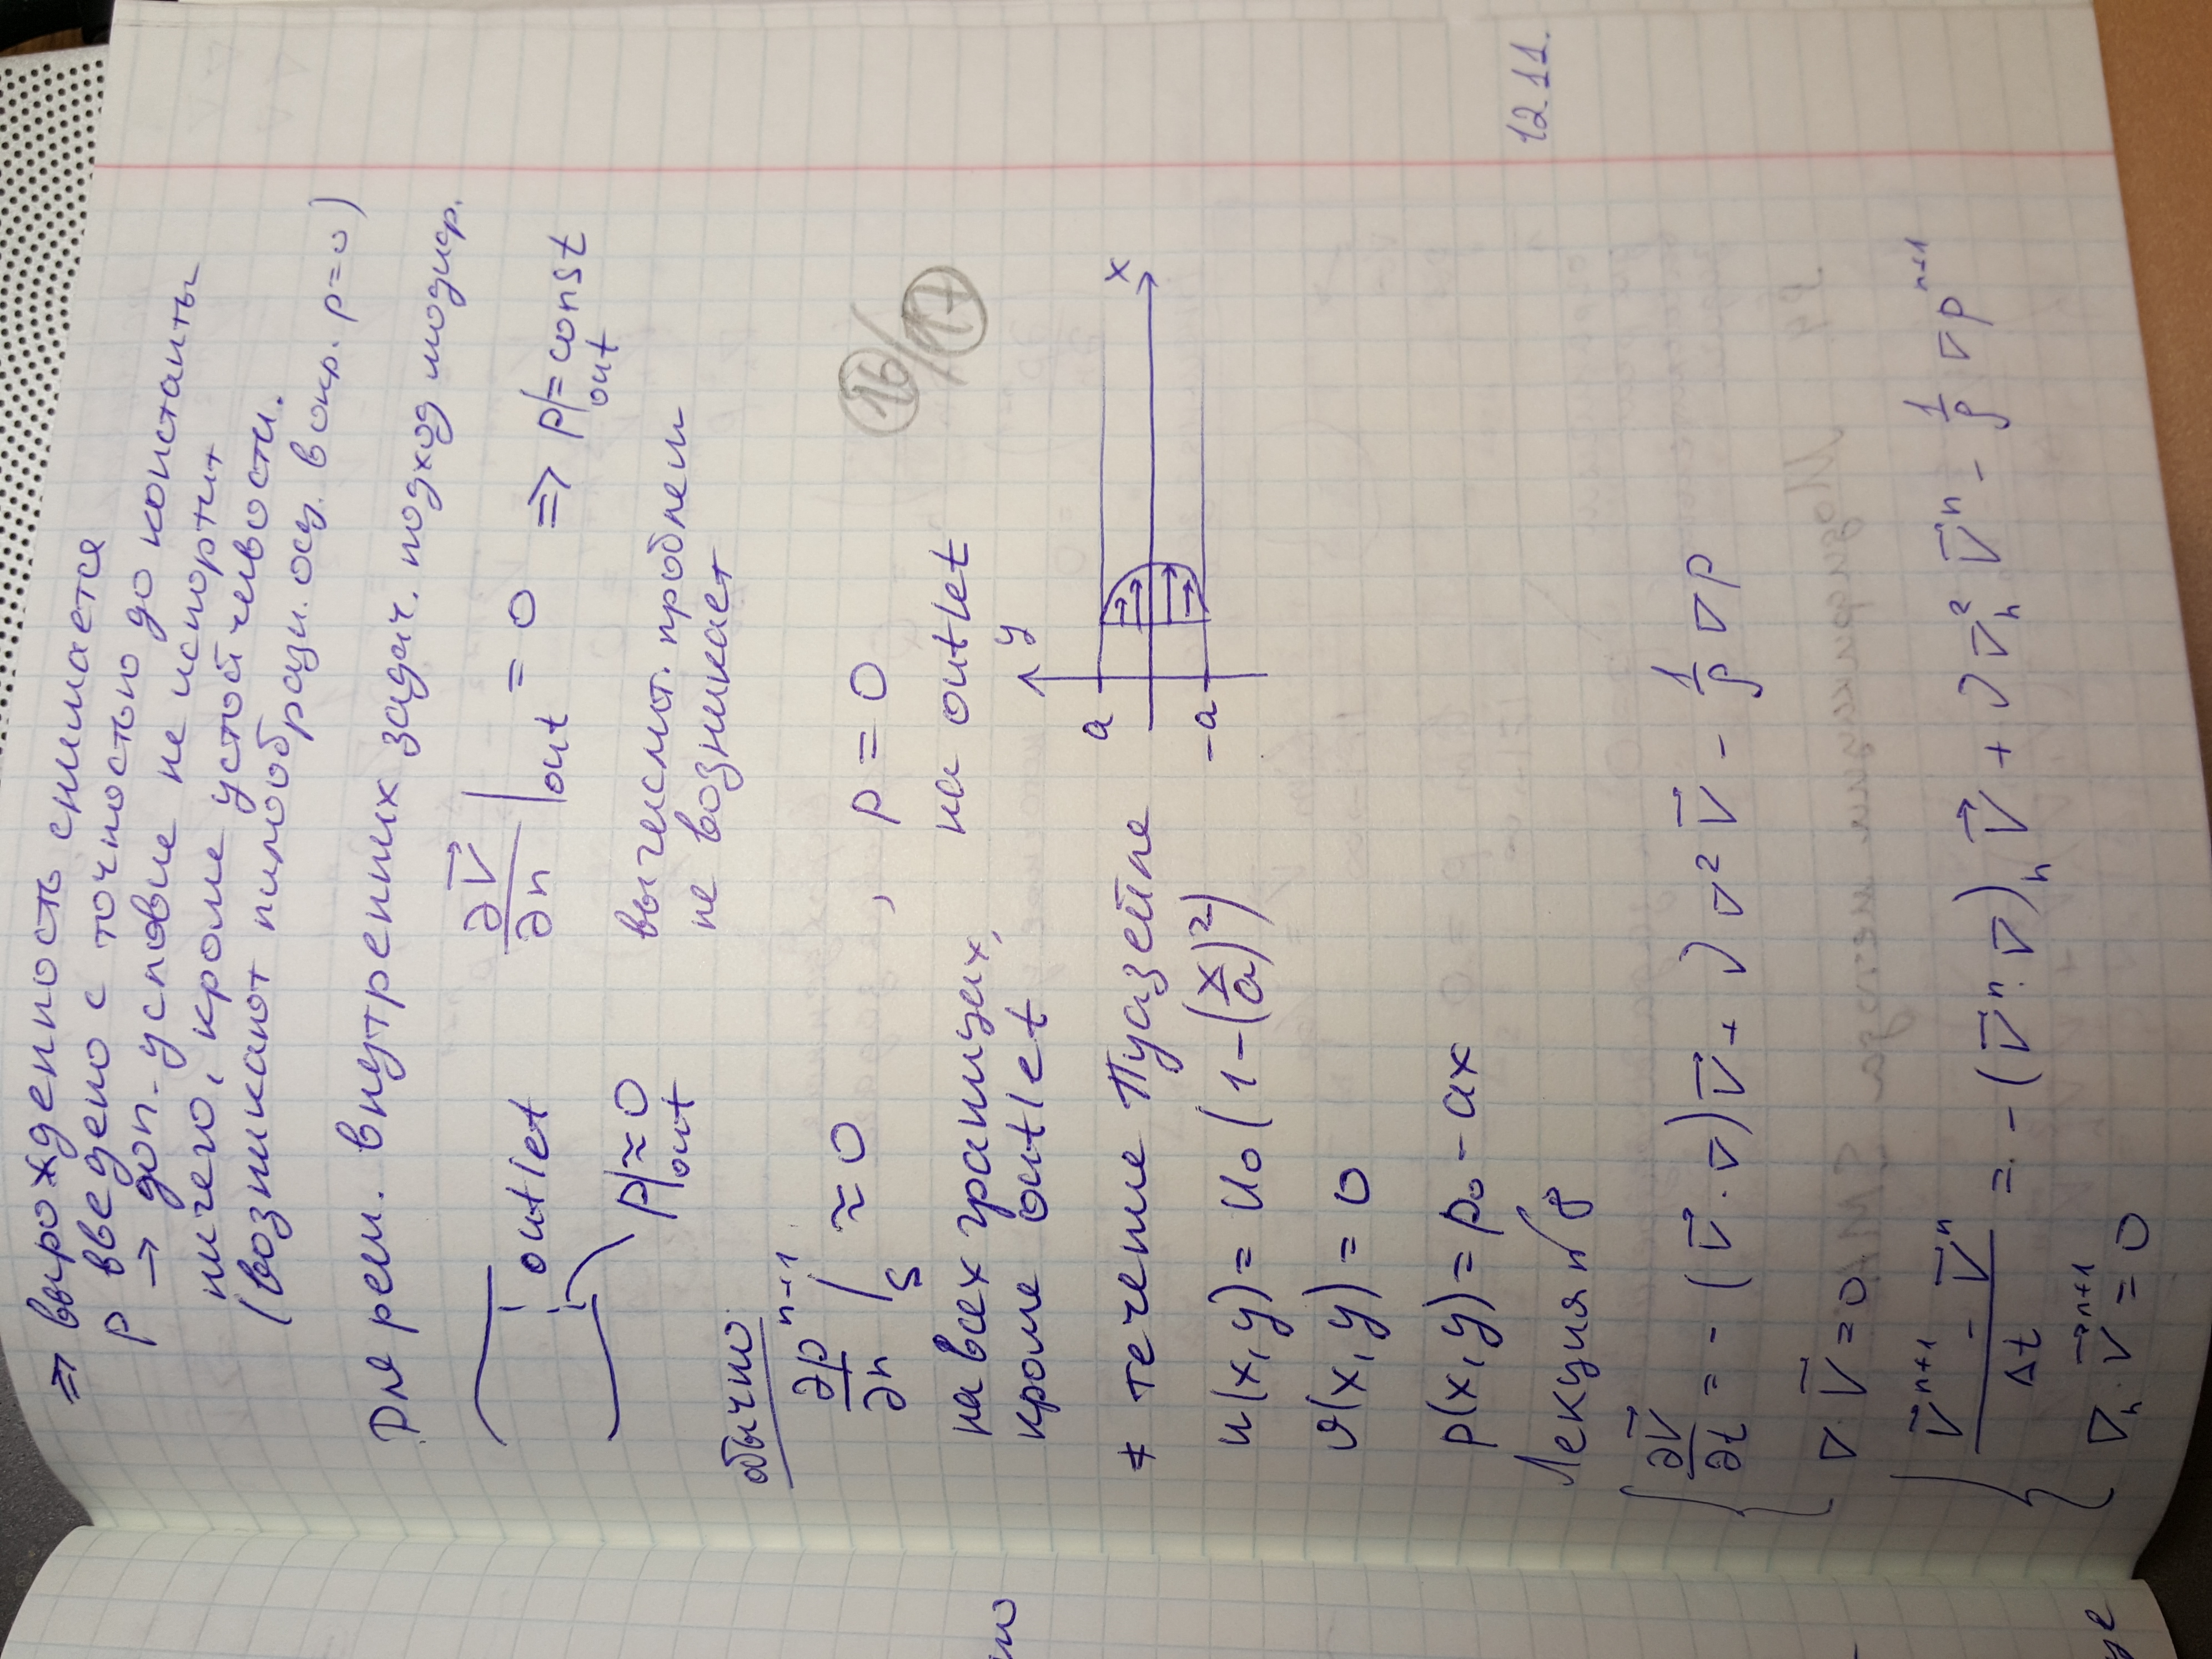 ⇒ вырожденность снимается
p введено с точностью до константы
→ доп. условие не испортит
ничего, кроме устойчивости.
(возникают пилообразн. осц. в окр. p=0)
Для реш. внутренних задач. подход модиф.
outlet
p|out ≈ 0
∂V⃗/∂n |out = 0 ⇒ p|out = const
вычислит. проблем
не возникает
обычно
∂p^{n+1}/∂n |S ≈ 0 , p = 0
на всех границах, на outlet
кроме outlet
16/17
y
a
x
-a
≠ течение Пуазейля
u(x, y) = u₀(1-(x/a)²)
v(x, y) = 0
p(x, y) = p₀ - ax
Лекция №8
12.11.
∂V⃗/∂t = - (V⃗·∇)V⃗ + ν∇²V⃗ - 1/ρ ∇p
∇·V⃗ = 0
(V⃗^{n+1} - V⃗^n)/Δt = -(V⃗^n·∇)_h V⃗ + ν∇_h² V⃗^n - 1/ρ ∇p^{n+1}
∇_h·V⃗^{n+1} = 0